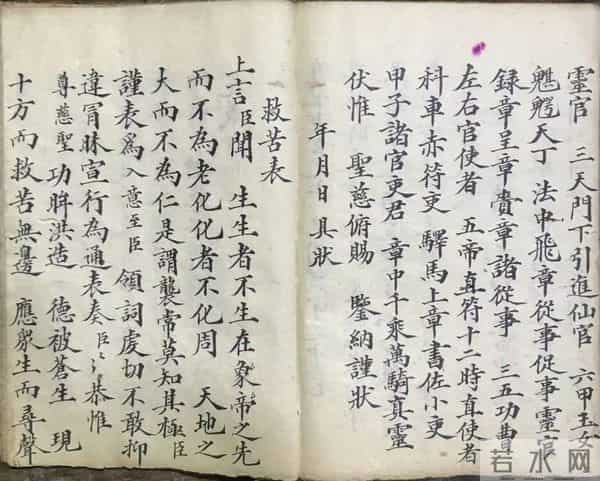 靈官 三天門下引進仙官 六甲玉女
魁魁天丁 法中飛章從事從事靈官
録章呈章賫章諸從事 三五功曹
左右官使者 五帝直符十二時直使者
科車赤符吏 驛馬上章書佐小吏
甲子諸官吏君 章中千乘萬騎真靈
伏惟 聖慈俯賜 鑒納謹狀
年月日具狀
救苦表
上言臣聞 生生者不生在象帝之先
而不為老化化者不化周 天地之
大而不為仁是謂襲常莫知其極臣
謹表為入意至臣領詞虔切不敢抑
違冒昧宣行為通表奏臣〻恭惟
尊慈聖功眸洪造 德被蒼生 現
十方而救苦無邊 應衆生而尋聲
若水网